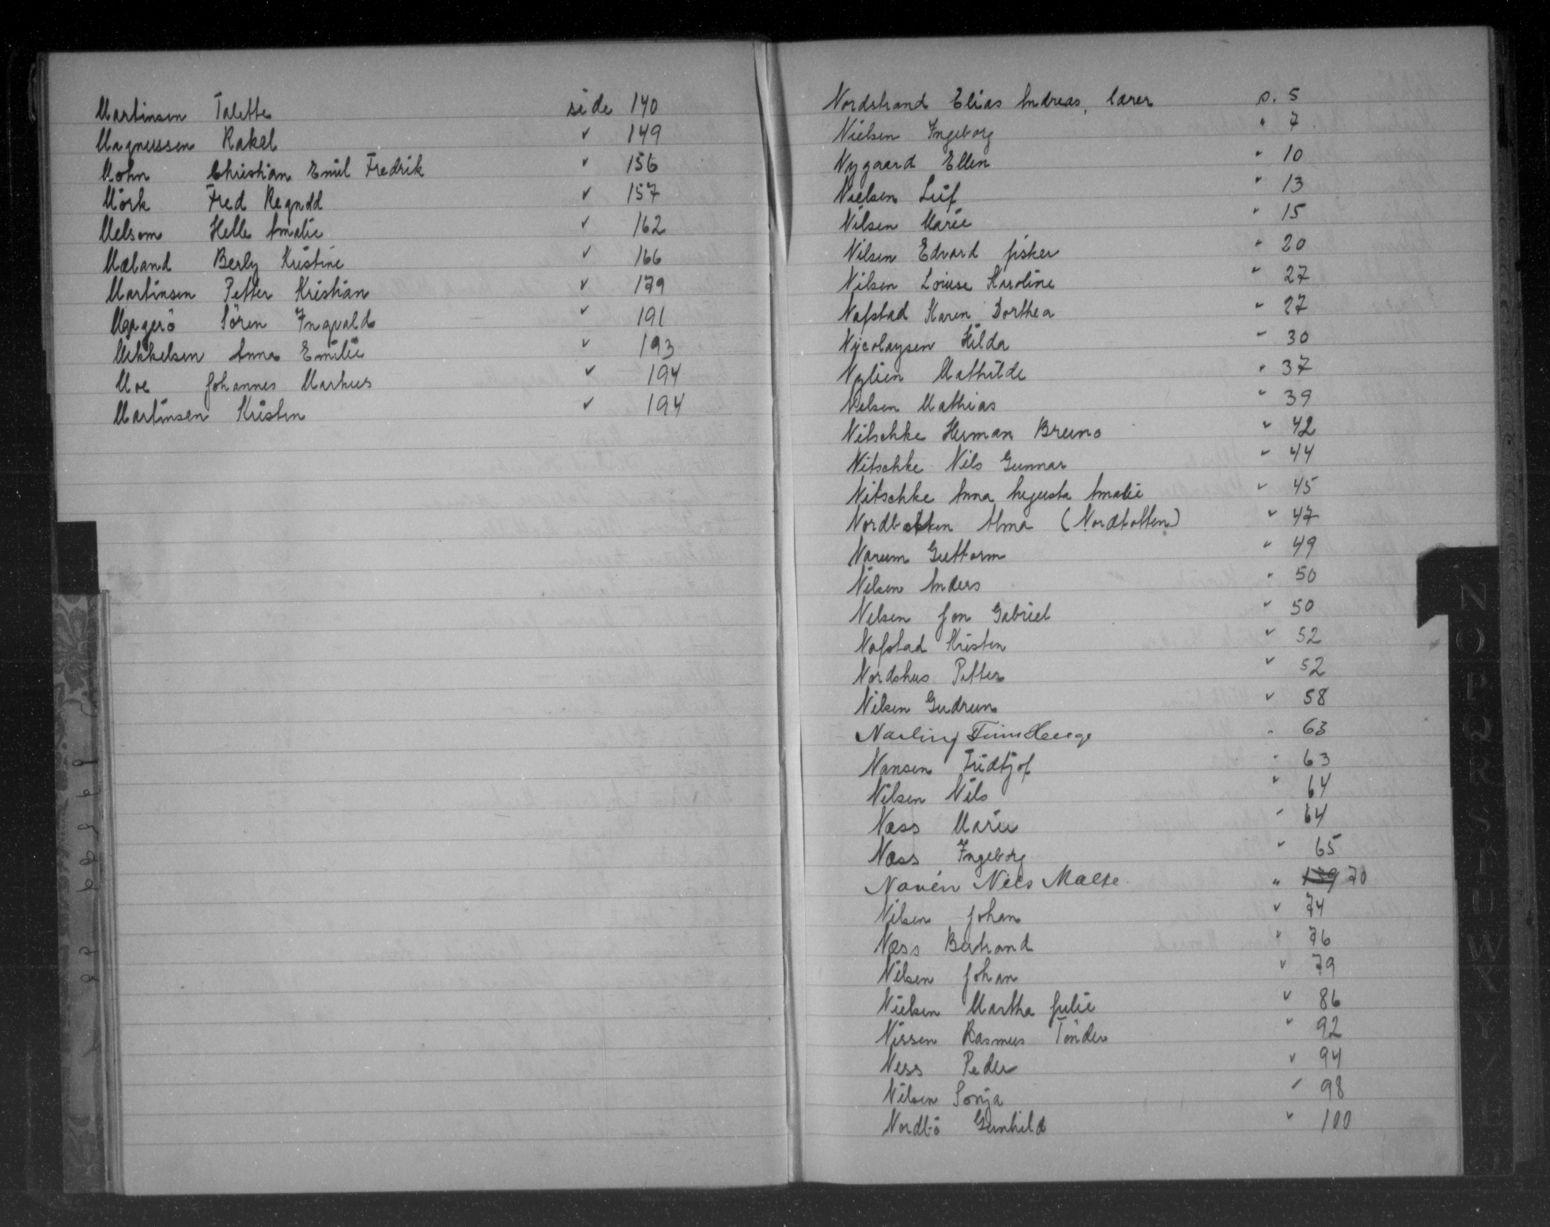 Martinsen Talette side 140
Magnussen Rakel " 149
Mohn Christian Emil Fredrik " 156
Mörk Fred Regndd " 157
Melsom Helle Amalie " 162
Mæland Berly Kristine " 166
Martinsen Petter Kristian " 179
Magerö Sören Ingvald " 191
Mikkelsen Anna Emilie " 193
Moe Johannes Markus " 194
Martinsen Kristen " 194
Nordstrand Elias Andreas, lærer s. 5
Nielsen Ingeborg " 7
Nygaard Ellen " 10
Nielsen Leif " 13
Nilsen Marie " 15
Nilsen Edvard fisker " 20
Nilsen Louise Karoline " 27
Nafstad Karen Dorthea " 27
Nycolaysen Hilda " 30
Nylien Mathilde " 37
Nilsen Mathias " 39
Nitschke Herman Bruno " 42
Nitschke Nils Gunnar " 44
Nitschke Anna Augusta Amalie " 45
Nordbakken Alma (Nordbotten) " 47
Narum Guttorm " 49
Nilsen Anders " 50
Nilsen Jon Gabriel " 50
Nafstad Kristen " 52
Nordshus Petter " 52
Nilsen Gudrun " 58
Narling Finn Hauge " 63
Nansen Fridtjof " 63
Nilsen Nils " 64
Næss Marie " 64
Næss Ingeborg " 65
Navén Nels Malte " 139 70
Nilsen Johan " 74
Næss Bertrand " 76
Nilsen Johan " 79
Nielsen Martha Julie " 86
Nissen Rasmus Tönder " 92
Ness Peder " 94
Nilsen Sonja " 98
Nordbö Gunhild " 100
N
O
P
Q
R
S
T
U
W
X
Y